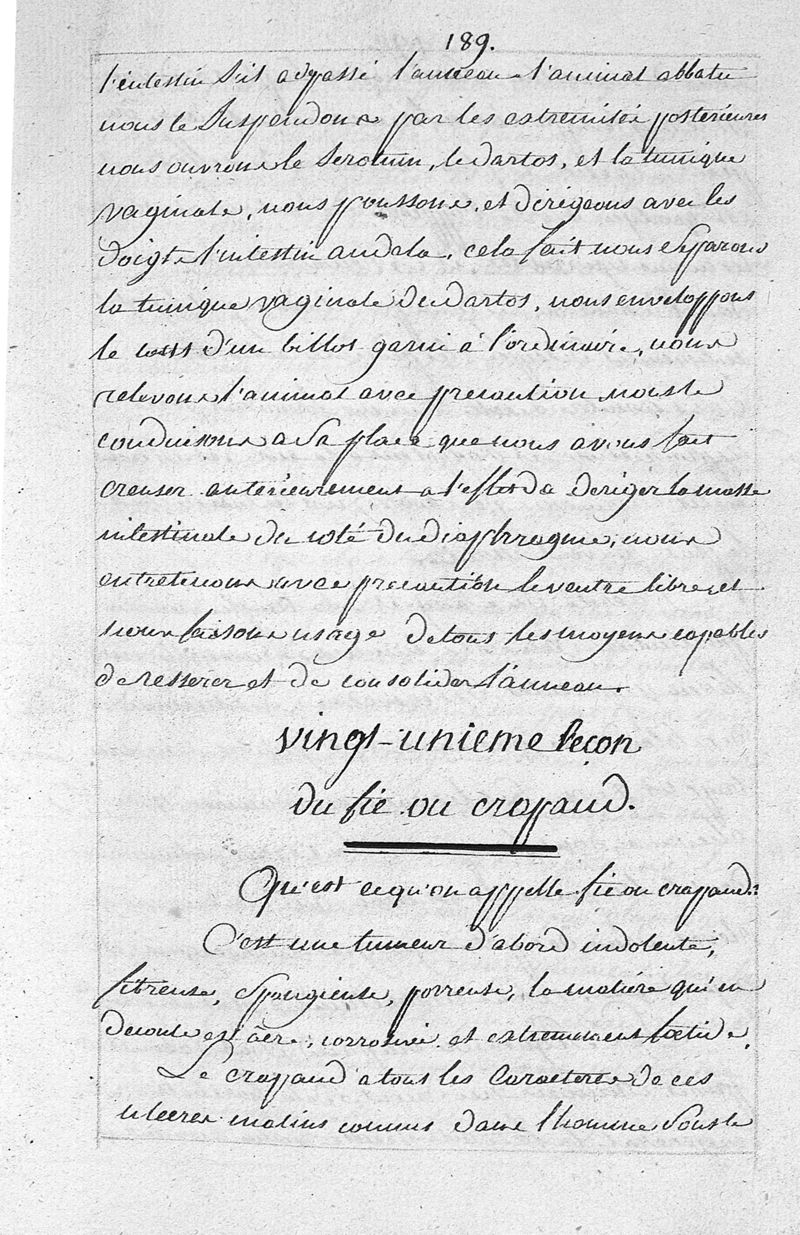 189.
l'intestin s'il a dépassé l'anneau l'animal abbatu
nous le suspendons par les extremités posterieures
nous ouvrons le scrotum, le dartos, et la tunique
vaginale, nous poussons, et dirigeons avec les
doigts l'intestin audela, cela fait nous separons
la tunique vaginale du dartos, nous enveloppons
le tout d'un billot garni à l'ordinaire, nous
relevons l'animal avec precaution nous le
conduisons a sa place que nous avons fait
creuser anterieurement a l'effet de deriger la masse
intestinale du coté du diaphragme, nous
entretenons avec precaution le ventre libre, et
nous faisons usage de tous les moyens capables
de resserer et de consolider l'anneau.
vingt-unieme leçon
du fic ou crapaud.
Qu'est ce qu'on appelle fic ou crapaud?
C'est une tumeur d'abord indolente,
fibreuse, spongieuse, porreuse, la matiére qui en
decoule est acre, corrosive et extremement foetide.
Le crapaud a tous les caracteres de ces
ulceres malins connus dans l'homme sous le